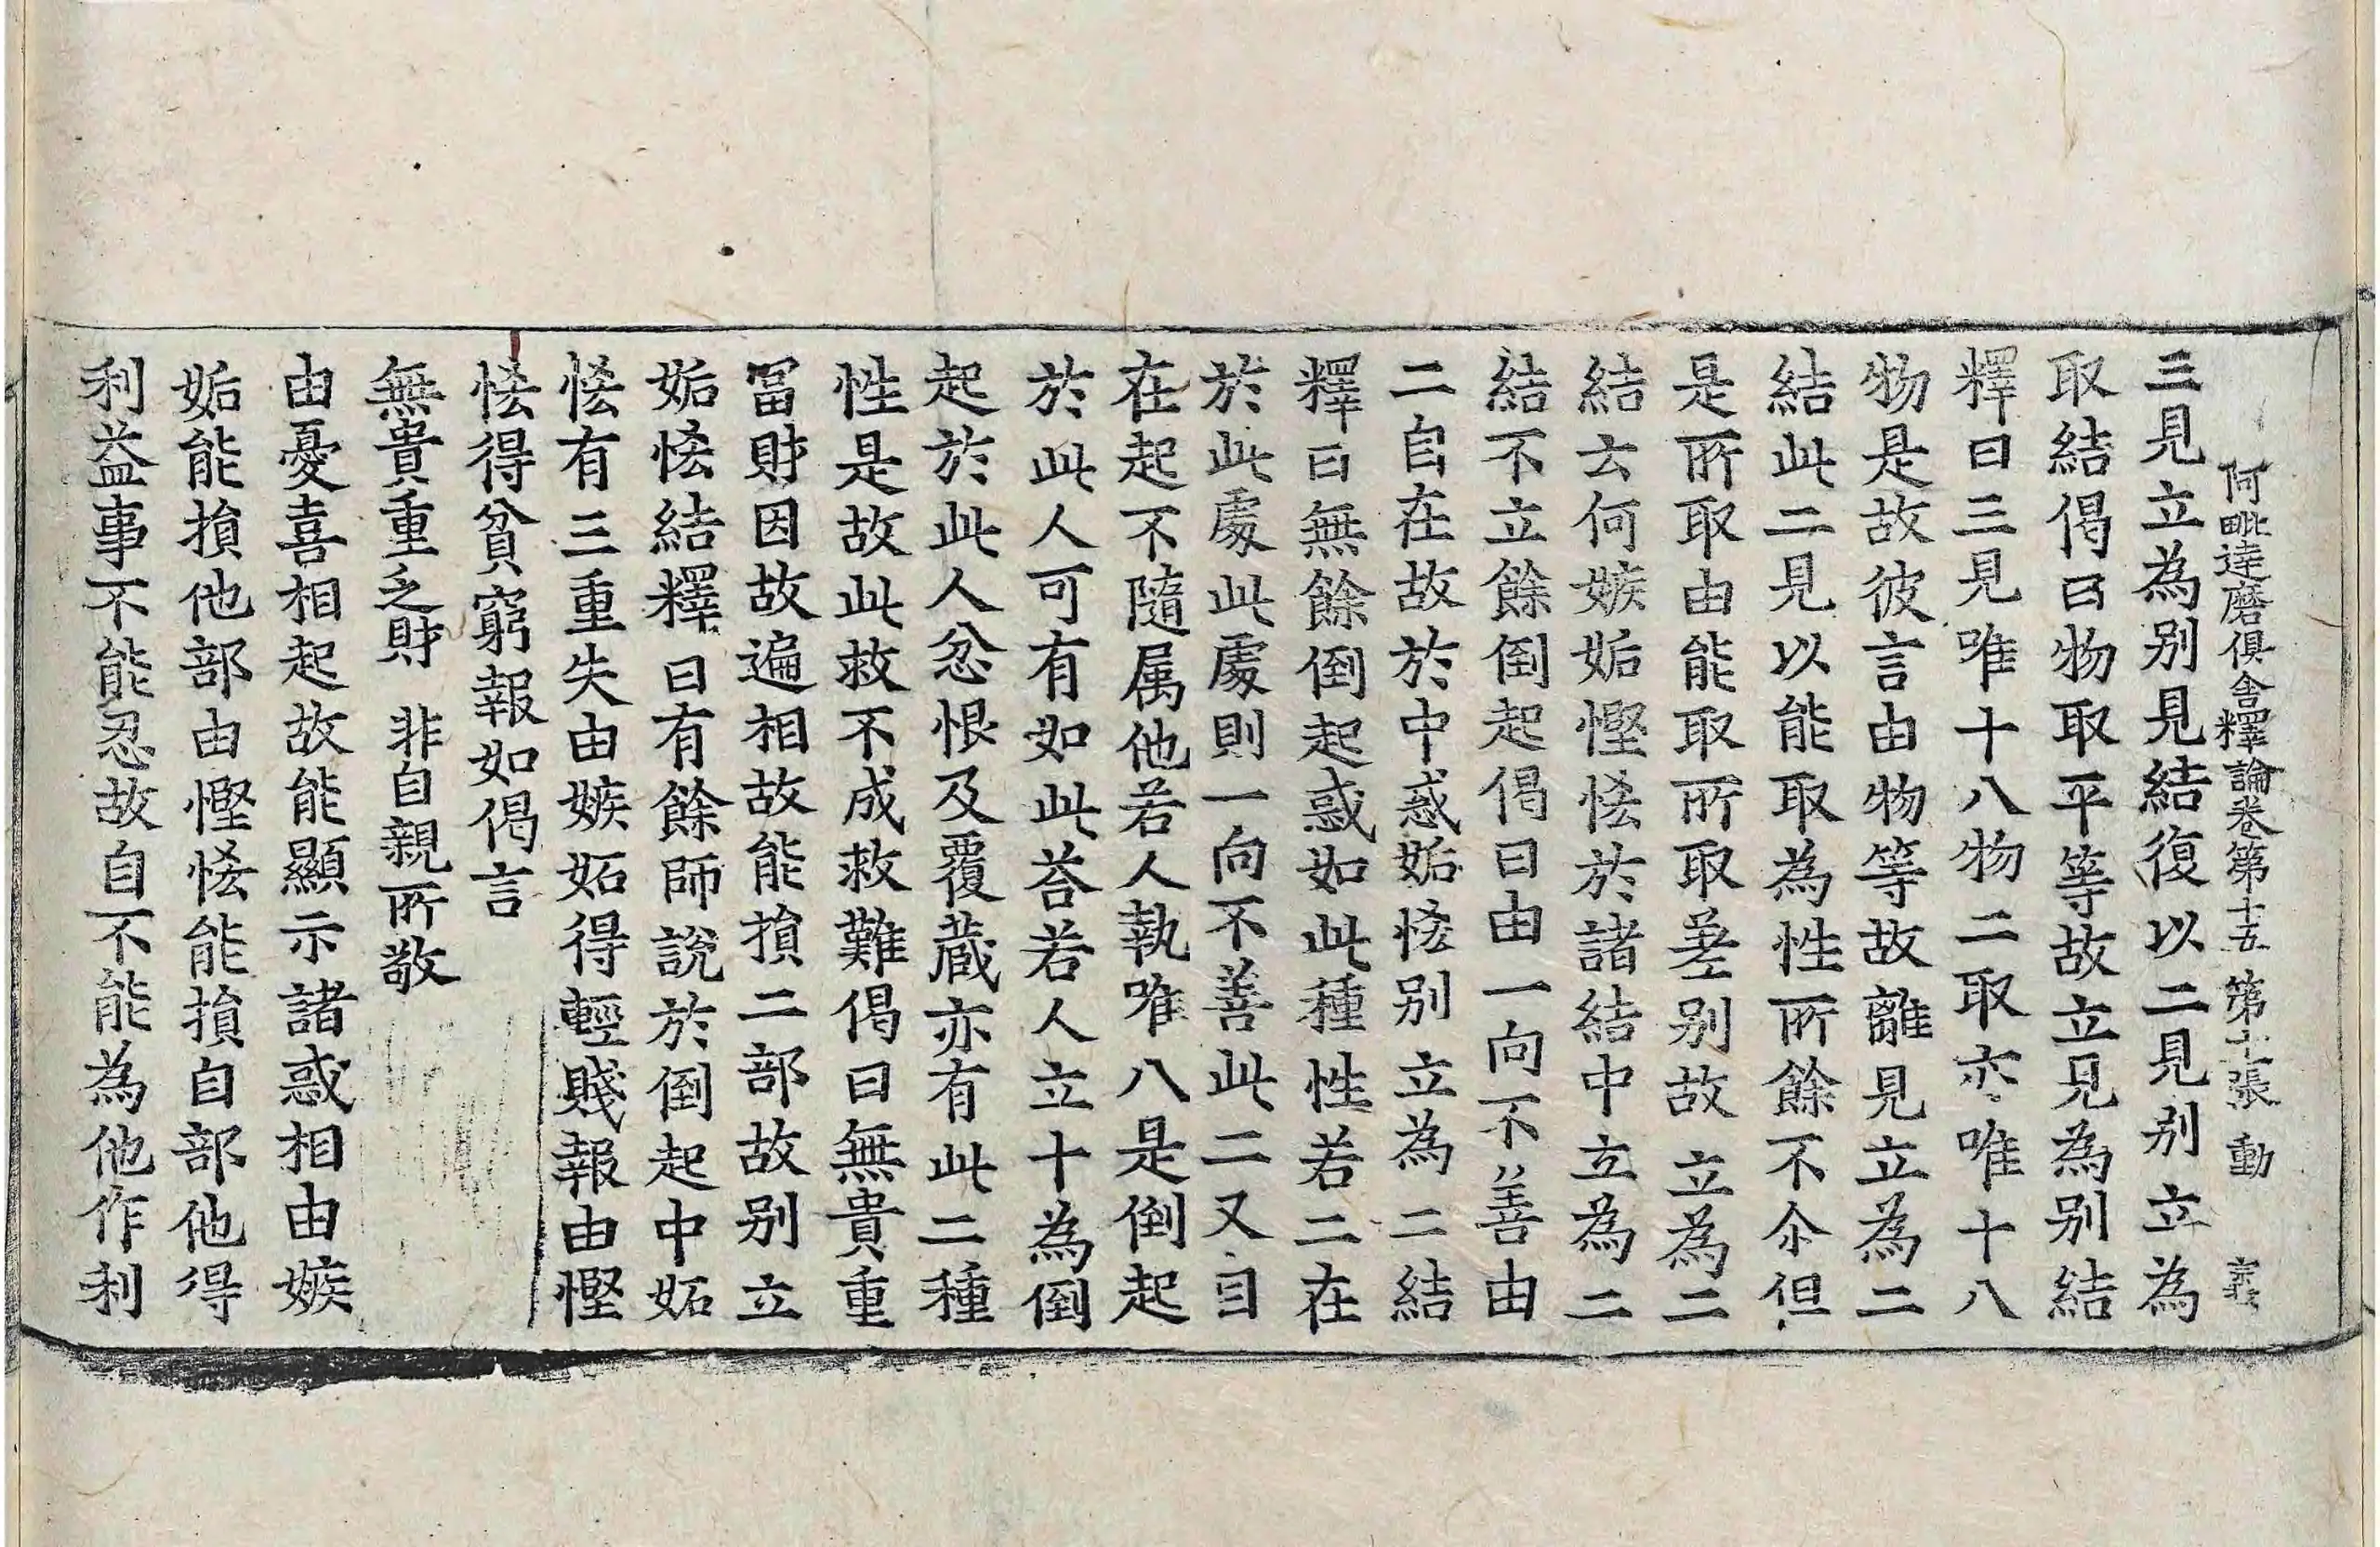 阿毗達磨俱舍釋論卷第十五 第十張 動
三見立為別見結復以二見別立為
取結偈曰物取平等故立見為別結
釋曰三見唯十八物二取亦唯十八
物是故彼言由物等故離見立為二
結此二見以能取為性所餘不尒但
是所取由能取所取差別故立為二
結云何嫉妬慳悋於諸結中立為二
結不立餘倒起偈曰由一向不善由
二自在故於中惑妬悋別立為二結
釋曰無餘倒起惑如此種性若二在
於此處此處則一向不善此二又自
在起不隨属他若人執唯八是倒起
於此人可有如此荅若人立十為倒
起於此人忿恨及覆藏亦有此二種
性是故此救不成救難偈曰無貴重
冨財因故遍相故能損二部故別立
妬悋結釋曰有餘師說於倒起中妬
悋有三重失由嫉妬得輕賤報由慳
悋得貧窮報如偈言
無貴重乏財 非自親所敬
由憂喜相起故能顯示諸惑相由嫉
妬能損他部由慳悋能損自部他得
利益事不能忍故自不能為他作利